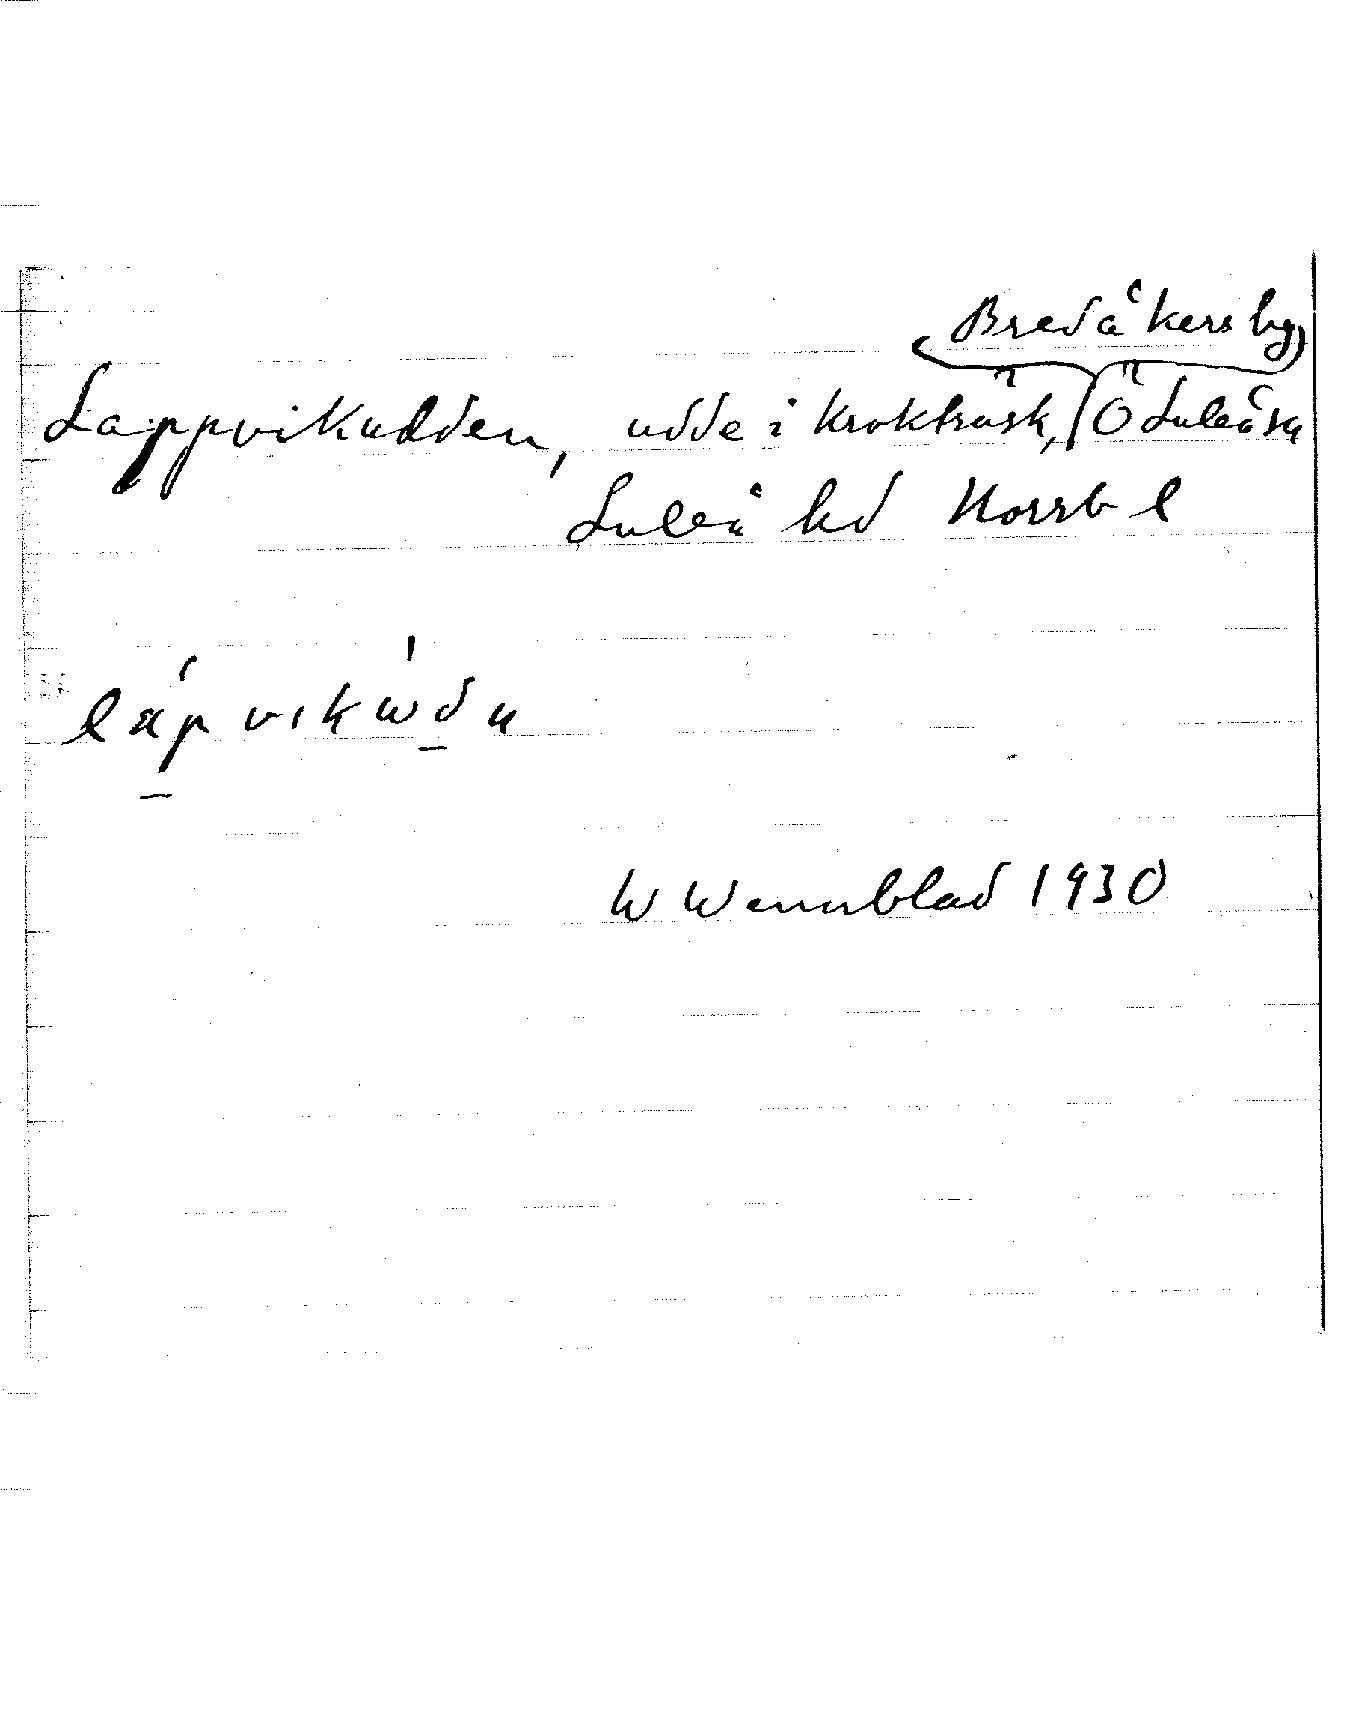 Bredåkers by
Lappvikudden, udde i Krokträsk, Ö Luleå sn
Luleå hd Norrb l
lápvikẁdn
W Wennblad 1930